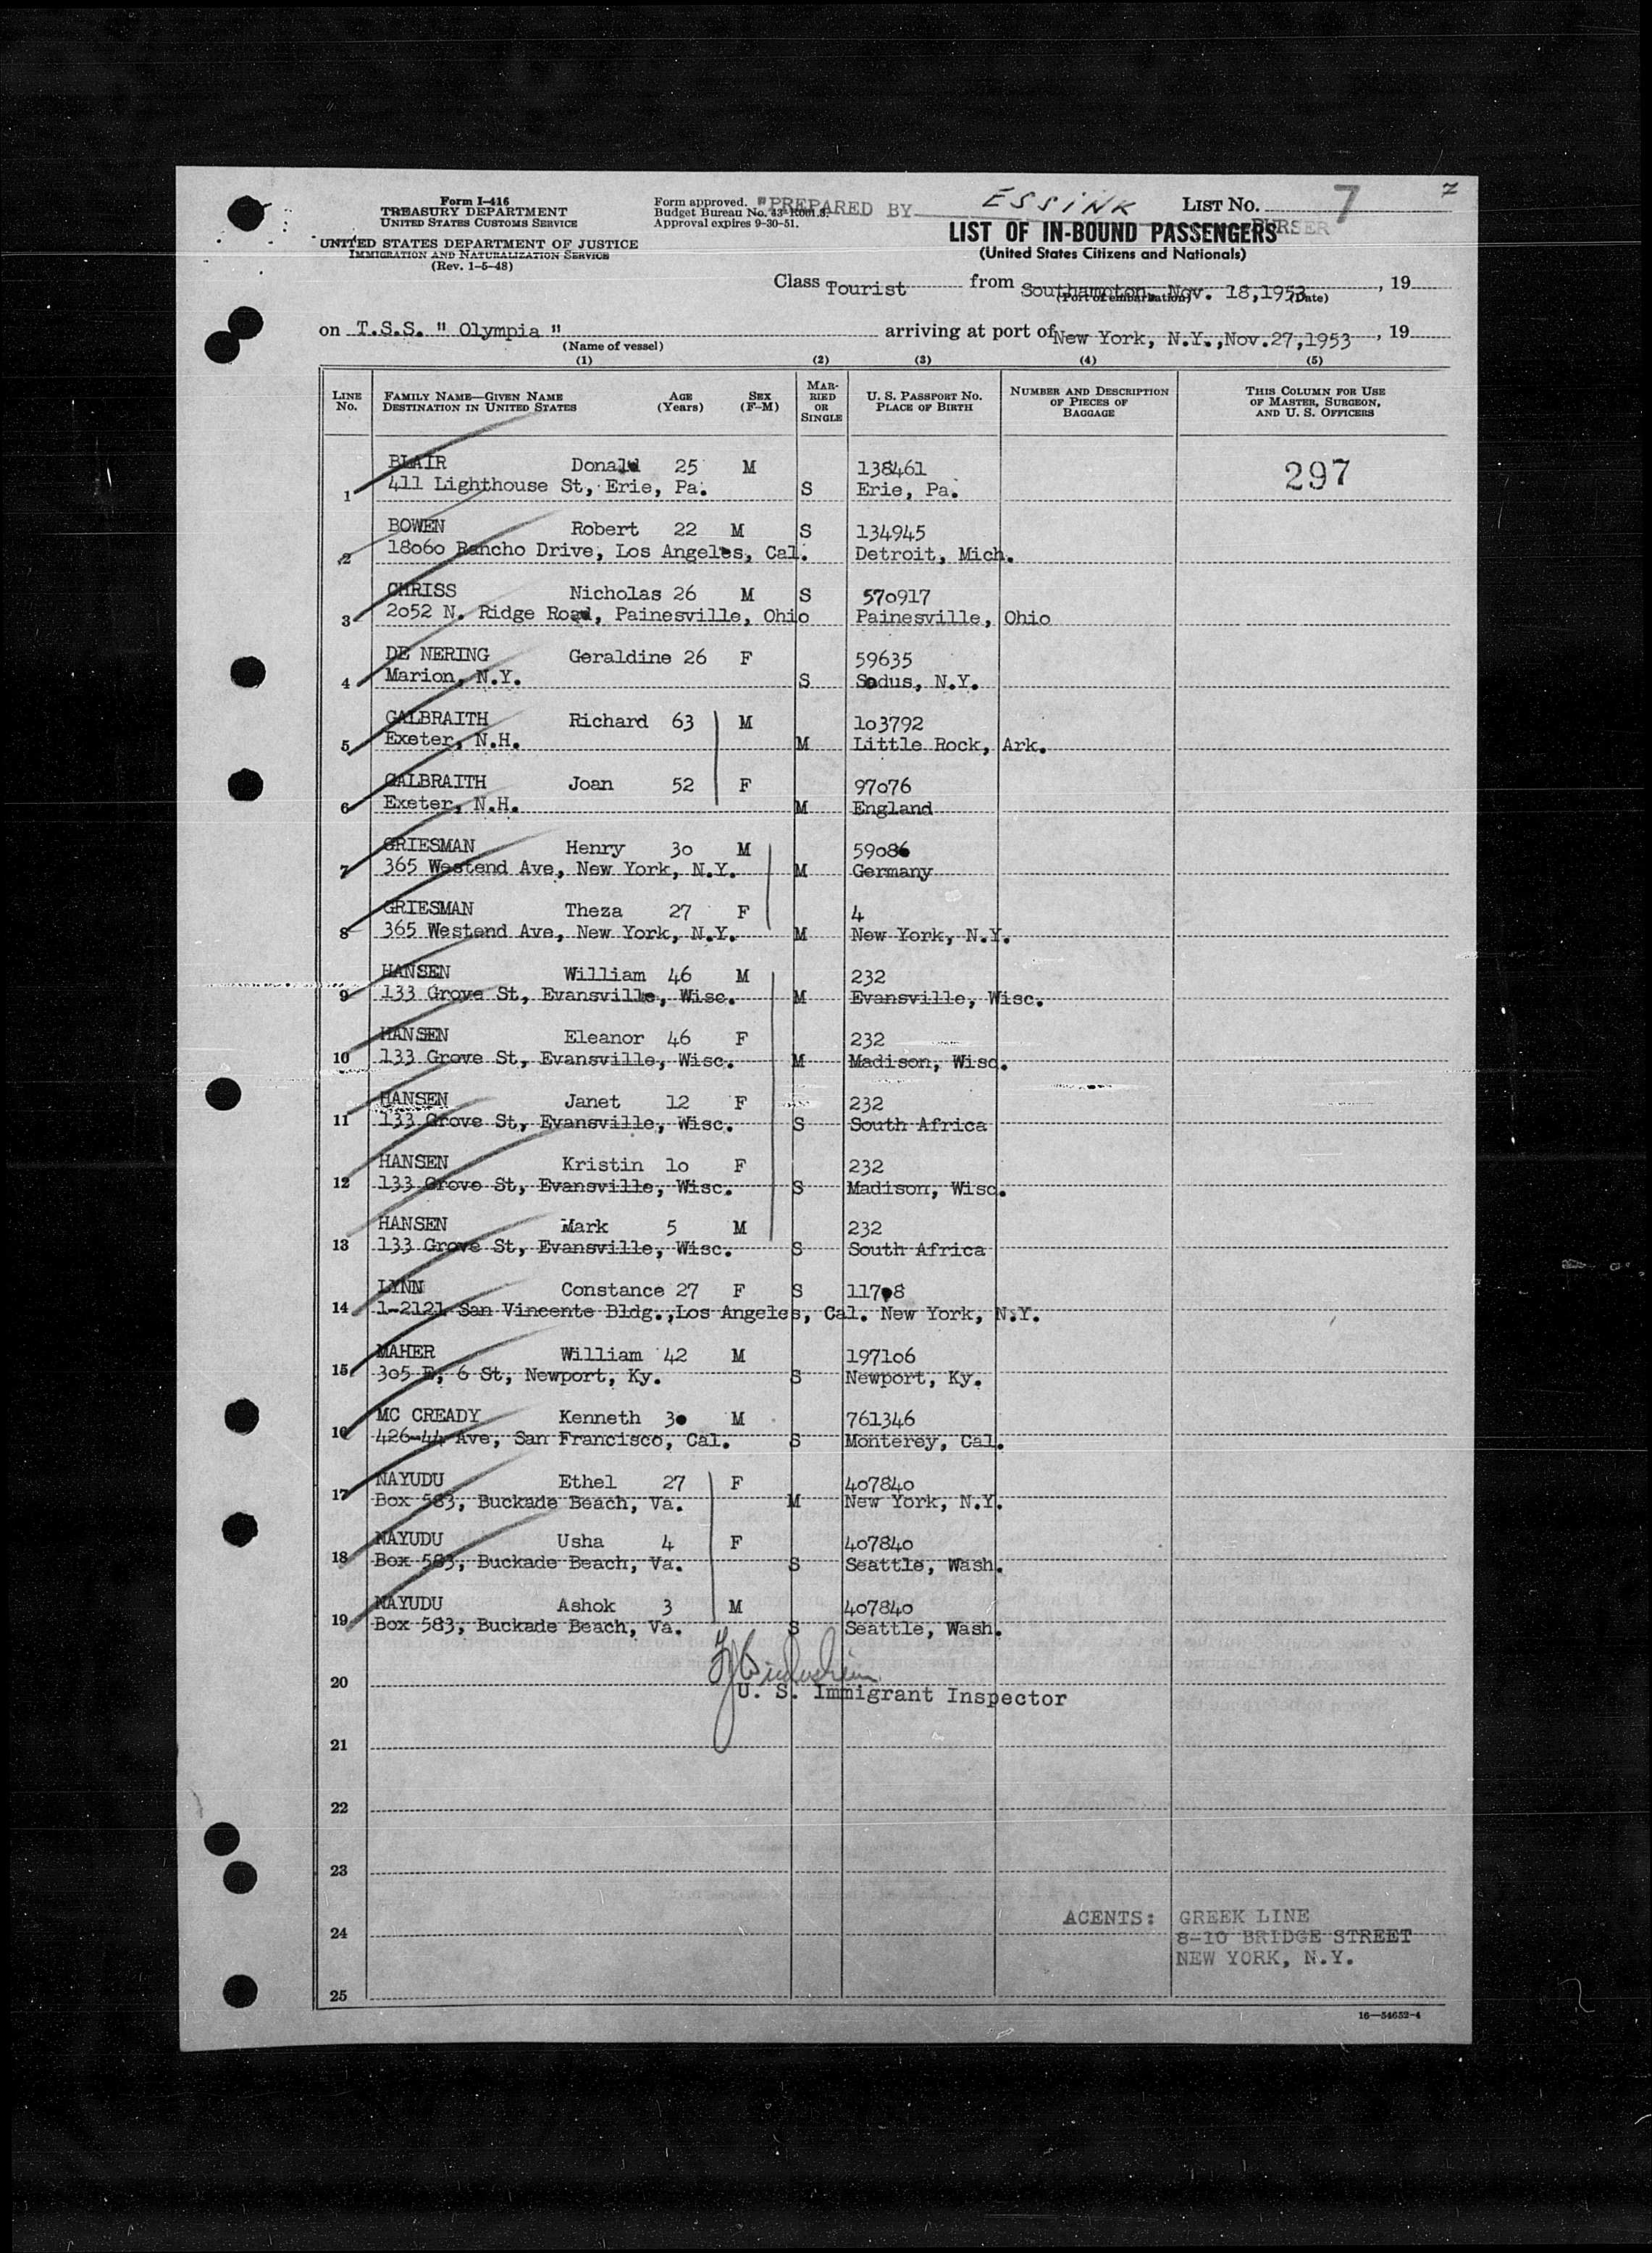 Form I-416
TREASURY DEPARTMENT
UNITED STATES CUSTOMS SERVICE
UNITED STATES DEPARTMENT OF JUSTICE
IMMIGRATION AND NATURALIZATION SERVICE
(Rev. 1-5-48)
Form approved.
Budget Bureau No. 43-R001.3.
Approval expires 9-30-51.
"PREPARED BY ESSINK
PURSER
LIST No. 7
7
LIST OF IN-BOUND PASSENGERS
(United States Citizens and Nationals)
Class Tourist from Southampton, Nov. 18,1953, 19
(Port of embarkation) (Date)
on T.S.S. " Olympia " arriving at port of New York, N.Y.,Nov.27,1953, 19
(Name of vessel)
(1) (2) (3) (4) (5)
LINE No. FAMILY NAME—GIVEN NAME DESTINATION IN UNITED STATES AGE (Years) SEX (F-M) MARRIED OR SINGLE U. S. PASSPORT NO. PLACE OF BIRTH NUMBER AND DESCRIPTION OF PIECES OF BAGGAGE THIS COLUMN FOR USE OF MASTER, SURGEON, AND U. S. OFFICERS
BLAIR Donald 25 M 138461 297
1 411 Lighthouse St, Erie, Pa. S Erie, Pa.
BOWEN Robert 22 M S 134945
2 18060 Rancho Drive, Los Angeles, Cal. Detroit, Mich.
CHRISS Nicholas 26 M S 570917
3 2052 N. Ridge Road, Painesville, Ohio Painesville, Ohio
DE NERING Geraldine 26 F 59635
4 Marion, N.Y. S Sodus, N.Y.
GALBRAITH Richard 63 M 103792
5 Exeter, N.H. M Little Rock, Ark.
GALBRAITH Joan 52 F 97076
6 Exeter, N.H. M England
GRIESMAN Henry 30 M 59086
7 365 Westend Ave, New York, N.Y. M Germany
GRIESMAN Theza 27 F 4
8 365 Westend Ave, New York, N.Y. M New York, N.Y.
HANSEN William 46 M 232
9 133 Grove St, Evansville, Wisc. M Evansville, Wisc.
HANSEN Eleanor 46 F 232
10 133 Grove St, Evansville, Wisc. M Madison, Wisc.
HANSEN Janet 12 F 232
11 133 Grove St, Evansville, Wisc. S South Africa
HANSEN Kristin 10 F 232
12 133 Grove St, Evansville, Wisc. S Madison, Wisc.
HANSEN Mark 5 M 232
13 133 Grove St, Evansville, Wisc. S South Africa
LYNN Constance 27 F S 11708
14 1-2121 San Vincente Bldg.,Los Angeles, Cal. New York, N.Y.
MAHER William 42 M 197106
15 305 E, 6 St, Newport, Ky. S Newport, Ky.
MC CREADY Kenneth 30 M 761346
16 426-44 Ave, San Francisco, Cal. S Monterey, Cal.
NAYUDU Ethel 27 F 407840
17 Box 583, Buckade Beach, Va. M New York, N.Y.
NAYUDU Usha 4 F 407840
18 Box 583, Buckade Beach, Va. S Seattle, Wash.
NAYUDU Ashok 3 M 407840
19 Box 583, Buckade Beach, Va. S Seattle, Wash.
20
U. S. Immigrant Inspector
21
22
23
ACENTS: GREEK LINE
24 8-10 BRIDGE STREET
NEW YORK, N.Y.
25
16—54652-4